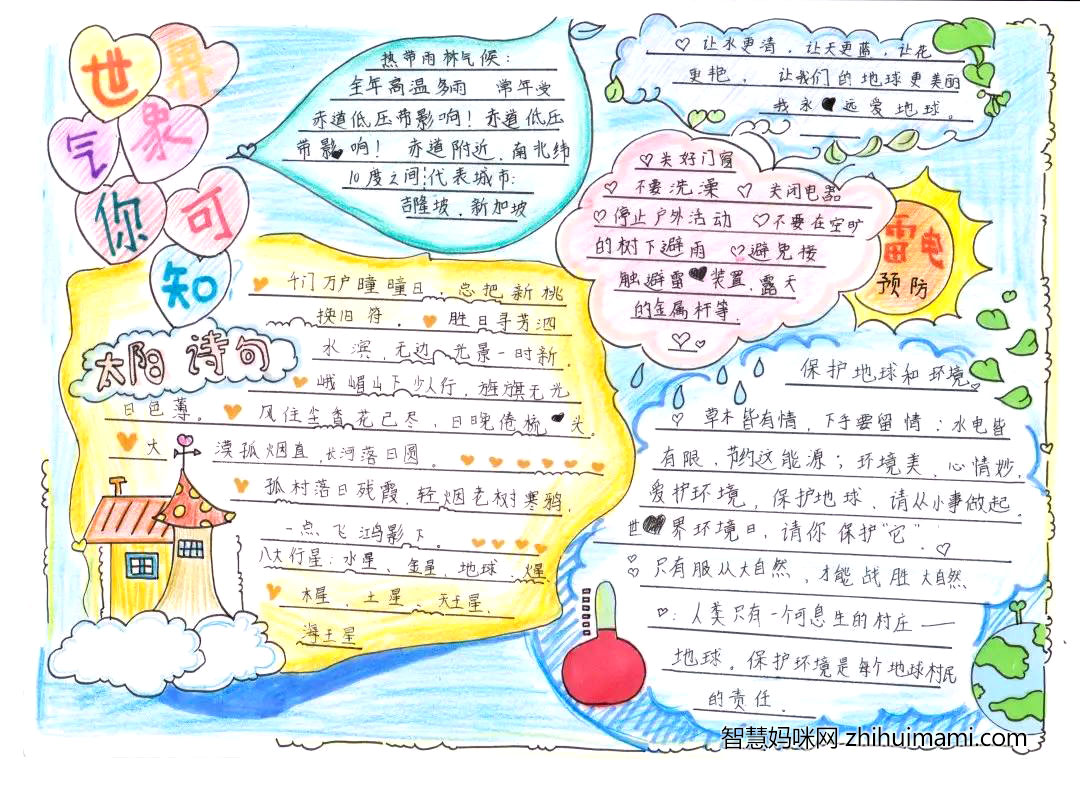 世界
气象
你可
知
热带雨林气候：
全年高温多雨 常年受
赤道低压带影响！赤道低压
带影响！ 赤道附近，南北纬
10度之间 代表城市：
吉隆坡、新加坡
让水更清，让天更蓝，让花
更艳， 让我们的地球更美丽
我永远爱地球。
关好门窗
不要洗澡 关闭电器
停止户外活动 不要在空旷
的树下避雨 避免接
触避雷装置、露天
的金属杆等.
雷电
预防
太阳诗句
千门万户曈曈日，总把新桃
换旧符。 胜日寻芳泗
水滨，无边光景一时新.
峨嵋山下少人行，旌旗无光
日色薄。 风住尘香花已尽，日晚倦梳头。
大漠孤烟直，长河落日圆。
孤村落日残霞，轻烟老树寒鸦，
一点飞鸿影下。
八大行星：水星、金星、地球、火星
木星、土星、天王星、
海王星
保护地球和环境。
草木皆有情，下手要留情：水电皆
有限，节约这能源；环境美，心情妙，
爱护环境，保护地球，请从小事做起。
世界环境日，请你保护“它”.
只有服从大自然，才能战胜大自然
：人类只有一个可息生的村庄——
地球。保护环境是每个地球村民
的责任.
智慧妈咪网 zhihuimami.com